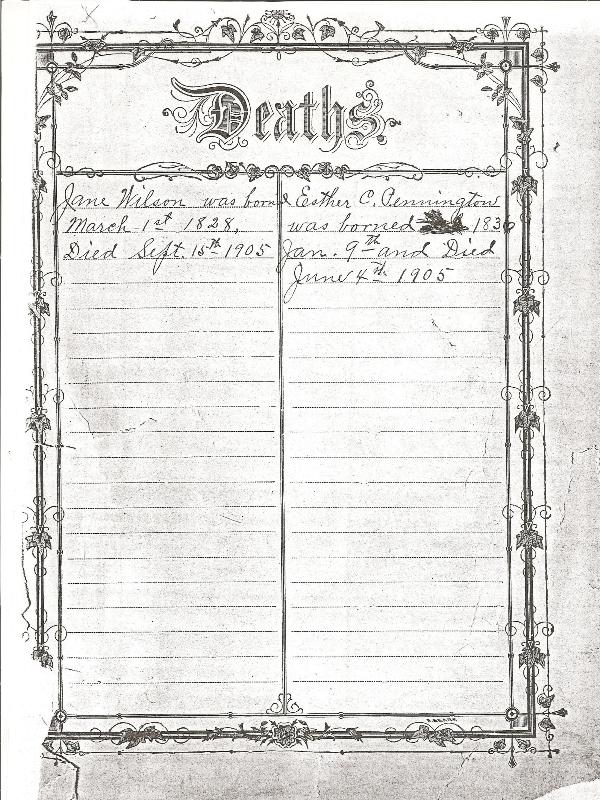 Deaths.
Jane Wilson was born
March 1st 1828,
Died Sept. 15th 1905
Esther C. Pennington
was borned 1836
Jan. 9th and Died
June 4th 1905